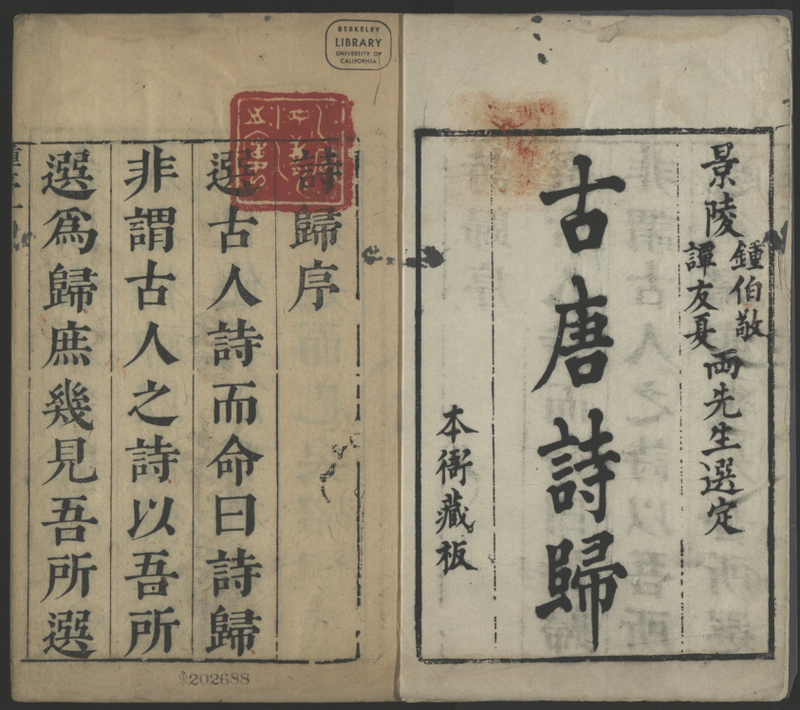 景陵鍾伯敬譚友夏兩先生選定
古唐詩歸
本衙藏板
詩歸序
選古人詩而命曰詩歸
非謂古人之詩以吾所
選為歸庶幾見吾所選
BERKELEY
LIBRARY
UNIVERSITY OF
CALIFORNIA
202688